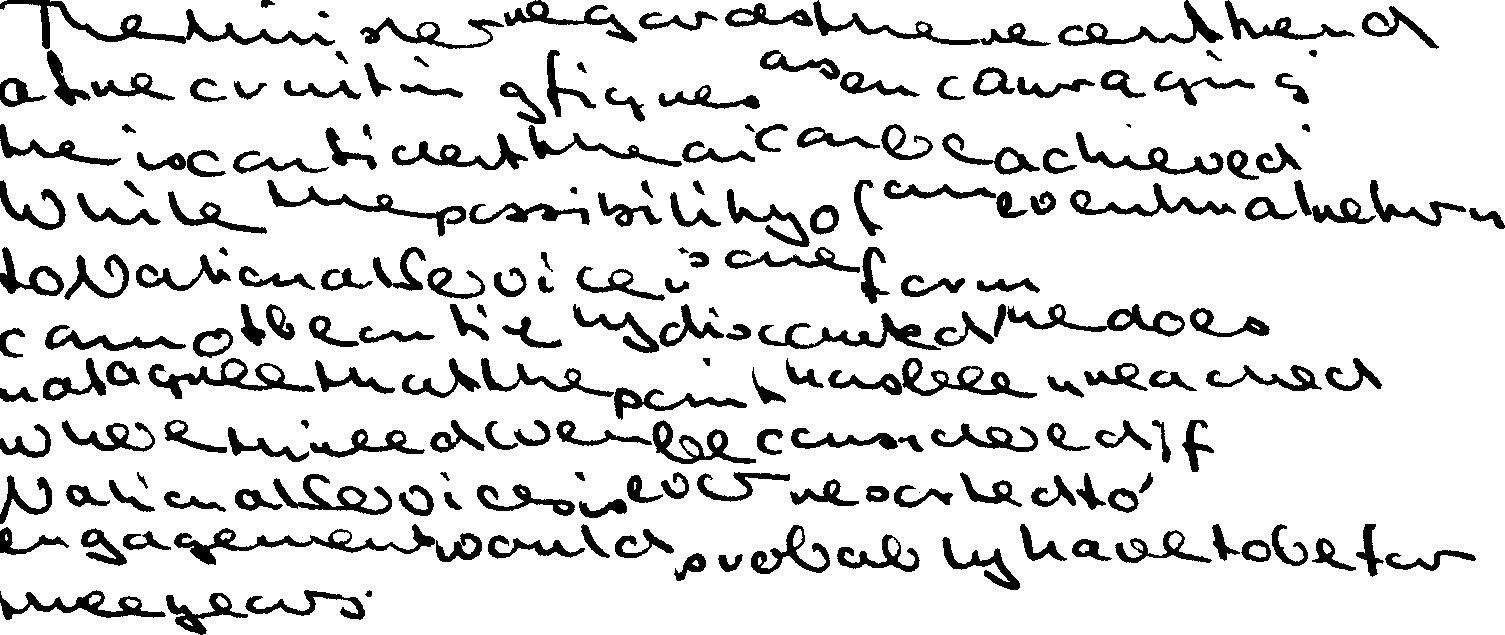 The Minister regards the recent trend
of recruiting figures as encouraging
He is confident the aim can be achieved
While the possibility of an eventual return
to National Service in some form
cannot be entirely discounted he does
not agree that the point has been reached
where it need even be considered if
National Service is ever resorted to
engagement would probably have to be for
three years.